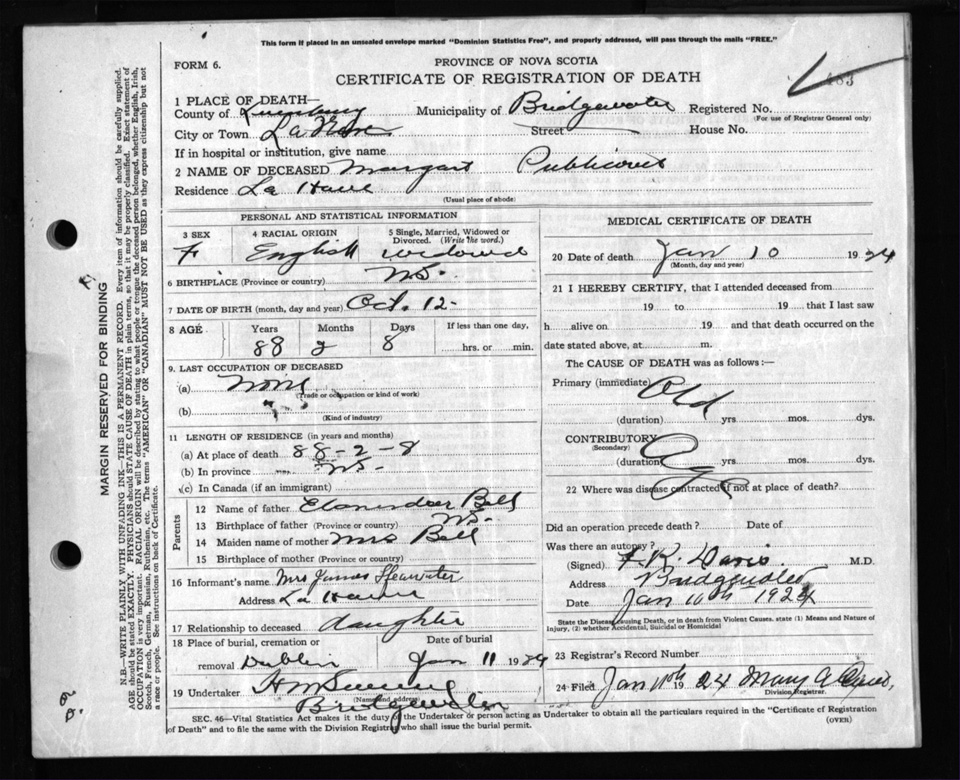 This form if placed in an unsealed envelope marked "Dominion Statistics Free", and properly addressed, will pass through the mails "FREE."
FORM 6.
PROVINCE OF NOVA SCOTIA
CERTIFICATE OF REGISTRATION OF DEATH
483
1 PLACE OF DEATH—
County of Lunenburg Municipality of Bridgewater Registered No.
(For use of Registrar General only)
City or Town La Have Street House No.
If in hospital or institution, give name
2 NAME OF DECEASED Margart Publicover
Residence La Have
(Usual place of abode)
PERSONAL AND STATISTICAL INFORMATION
3 SEX 4 RACIAL ORIGIN 5 Single, Married, Widowed or Divorced. (Write the word.)
F English widowed
6 BIRTHPLACE (Province or country) NS.
7 DATE OF BIRTH (month, day and year) Oct. 12-
8 AGE Years Months Days If less than one day,
88 2 8 hrs. or min.
9. LAST OCCUPATION OF DECEASED
(a) None
(Trade or occupation or kind of work)
(b)
(Kind of industry)
11 LENGTH OF RESIDENCE (in years and months)
(a) At place of death 88-2-8
(b) In province NS-
(c) In Canada (if an immigrant)
Parents
12 Name of father Bell
13 Birthplace of father (Province or country) NS-
14 Maiden name of mother Mrs Bell
15 Birthplace of mother (Province or country)
16 Informant's name Mrs James
Address La Have
17 Relationship to deceased daughter
18 Place of burial, cremation or removal Dublin
Date of burial Jan 11 1924
19 Undertaker H
(Name and address)
Bridgewater
MEDICAL CERTIFICATE OF DEATH
20 Date of death Jan 10 1924
(Month, day and year)
21 I HEREBY CERTIFY, that I attended deceased from
19 to 19 that I last saw
h alive on 19 and that death occurred on the
date stated above, at m.
The CAUSE OF DEATH was as follows:—
Primary (immediate) Old
(duration) yrs mos. dys.
CONTRIBUTORY Age
(Secondary)
(duration) yrs mos. dys.
22 Where was disease contracted if not at place of death?
Did an operation precede death? Date of
Was there an autopsy?
(Signed) F. R. Davis. M.D.
Address Bridgewater
Date Jan 10th 1924
State the Disease causing Death, or in death from Violent Causes. state (1) Means and Nature of Injury, (2) whether Accidental, Suicidal or Homicidal
23 Registrar's Record Number
24 Filed Jan 11th 1924 Mary A
Division Registrar.
SEC. 46—Vital Statistics Act makes it the duty of the Undertaker or person acting as Undertaker to obtain all the particulars required in the "Certificate of Registration of Death" and to file the same with the Division Registrar who shall issue the burial permit.
(OVER)
MARGIN RESERVED FOR BINDING
N.B.—WRITE PLAINLY WITH UNFADING INK—THIS IS A PERMANENT RECORD. Every item of information should be carefully supplied.
AGE should be stated EXACTLY. PHYSICIANS should STATE CAUSE OF DEATH in plain terms, so that it may be properly classified. Exact statement of
OCCUPATION is very important. RACIAL ORIGIN will be described by stating to what people or tongue the deceased person belonged, whether English, Irish,
Scotch, French, German, Russian, Ruthenian, etc. The terms "AMERICAN" OR "CANADIAN" MUST NOT BE USED as they express citizenship but not
a race or people. See instructions on back of Certificate.